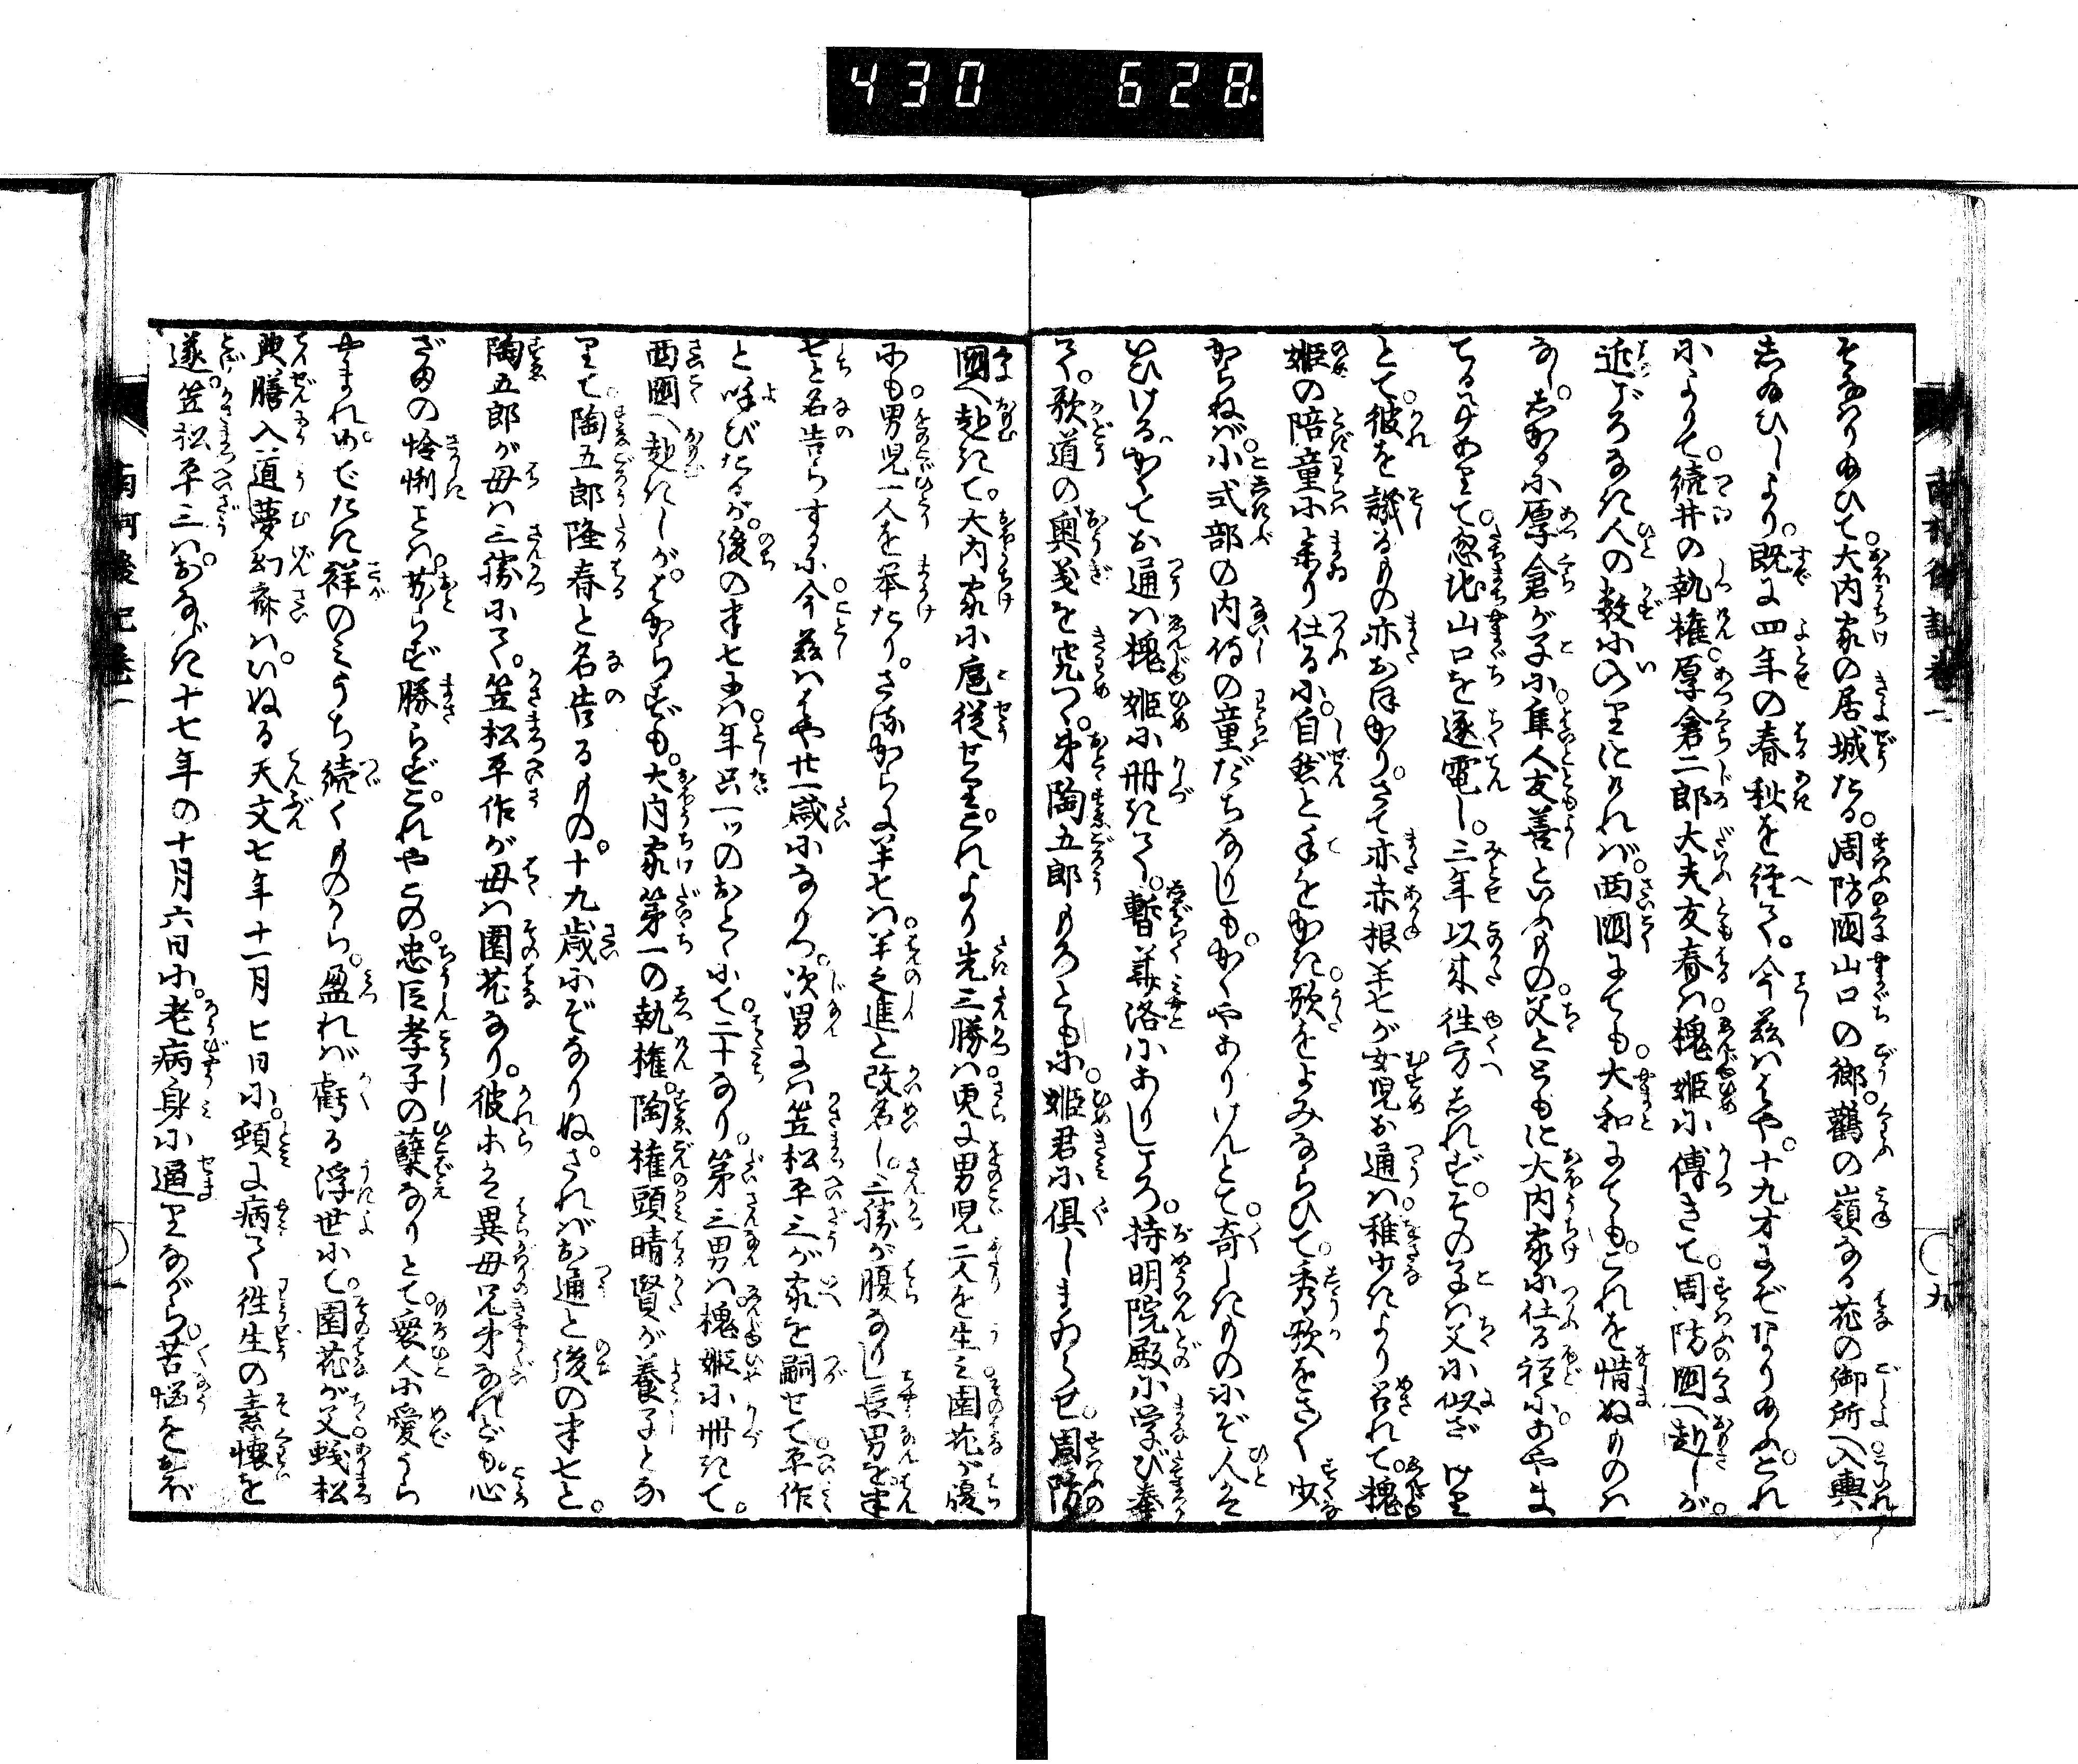 430 628
南柯後記巻一
九
そなはりあひて。大内家の居城たる。周防国山口の郷。鶴の嶺なる花の御所へ入輿
しゐひしより。既に四年の春秋を径て。今茲ははや。十九才にぞなりゐふ。これ
によりて。続井の執権。厚倉二郎大夫友春は槐姫に傅きて。周防国へ赴しが。
近ごろなき人の数に入りにければ。西国にても。大和にても。これを惜ぬものは
なし。しかるに厚倉が子に。隼人友善といふもの。父とともに大内家に仕る程に。あやま
てる事ありて。忽地山口を逐電し。三年以来往方しれず。その子は父に似ざりけり
とて。彼を譏るもの亦おほかり。さて亦赤根半七が女児お通は。稚きより召れて。槐
姫の陪童に参り仕るに。自然と手をかき。歌をよみならひて。秀歌をさへ少
からねば。小式部の内侍の童だちなりしも。かくやありけんとて。奇しきものにぞ人は
いひける。かくてお通は槐姫に冊きて。暫華洛にありしころ。持明院殿に学び奉
て。歌道の奥義を究つ。弟陶五郎もろともに。姫君に倶しまゐらせ。周防の
国へ赴きて。大内家に扈従せり。これより先三勝は。更に男児二人を生み。園花が腹
にも。男児一人を挙たり。さる
からに半七は。半之進と改名し。三勝が腹なりし長男を。半
七と名告らするに。今茲はや廿一歳になりつ。次男には。笠松平三が家を嗣せて。平作
と呼びたるが。後の半七には。年只一ツのおとゝにて。二十なり。第三男は。槐姫に冊きて。
西国へ赴にしが。はからずも。大内家第一の執権。陶権頭晴賢が養子とな
りて。陶五郎隆春と名告るもの。十九歳にぞなりぬ。さればお通と後の半七と。
陶五郎が母は三勝にて。笠松平作が母は園花なり。彼等は異母兄弟なれども。心
ざまの怜悧とは。劣らず勝らず。これやこの。忠臣孝子の蘖なりとて。衆人に愛うら
やまれ。めでたき祥のみうち続くものから。盈れば虧る浮世にて。園花が父。蟻松
典膳入道夢幻斎は。いぬる天文七年十一月七日に。頓に病て往生の素懐を
遂。笠松平三は。おなじき十七年の十月六日に。老病身に逼りながら。苦悩をおぼ
南柯後記巻一